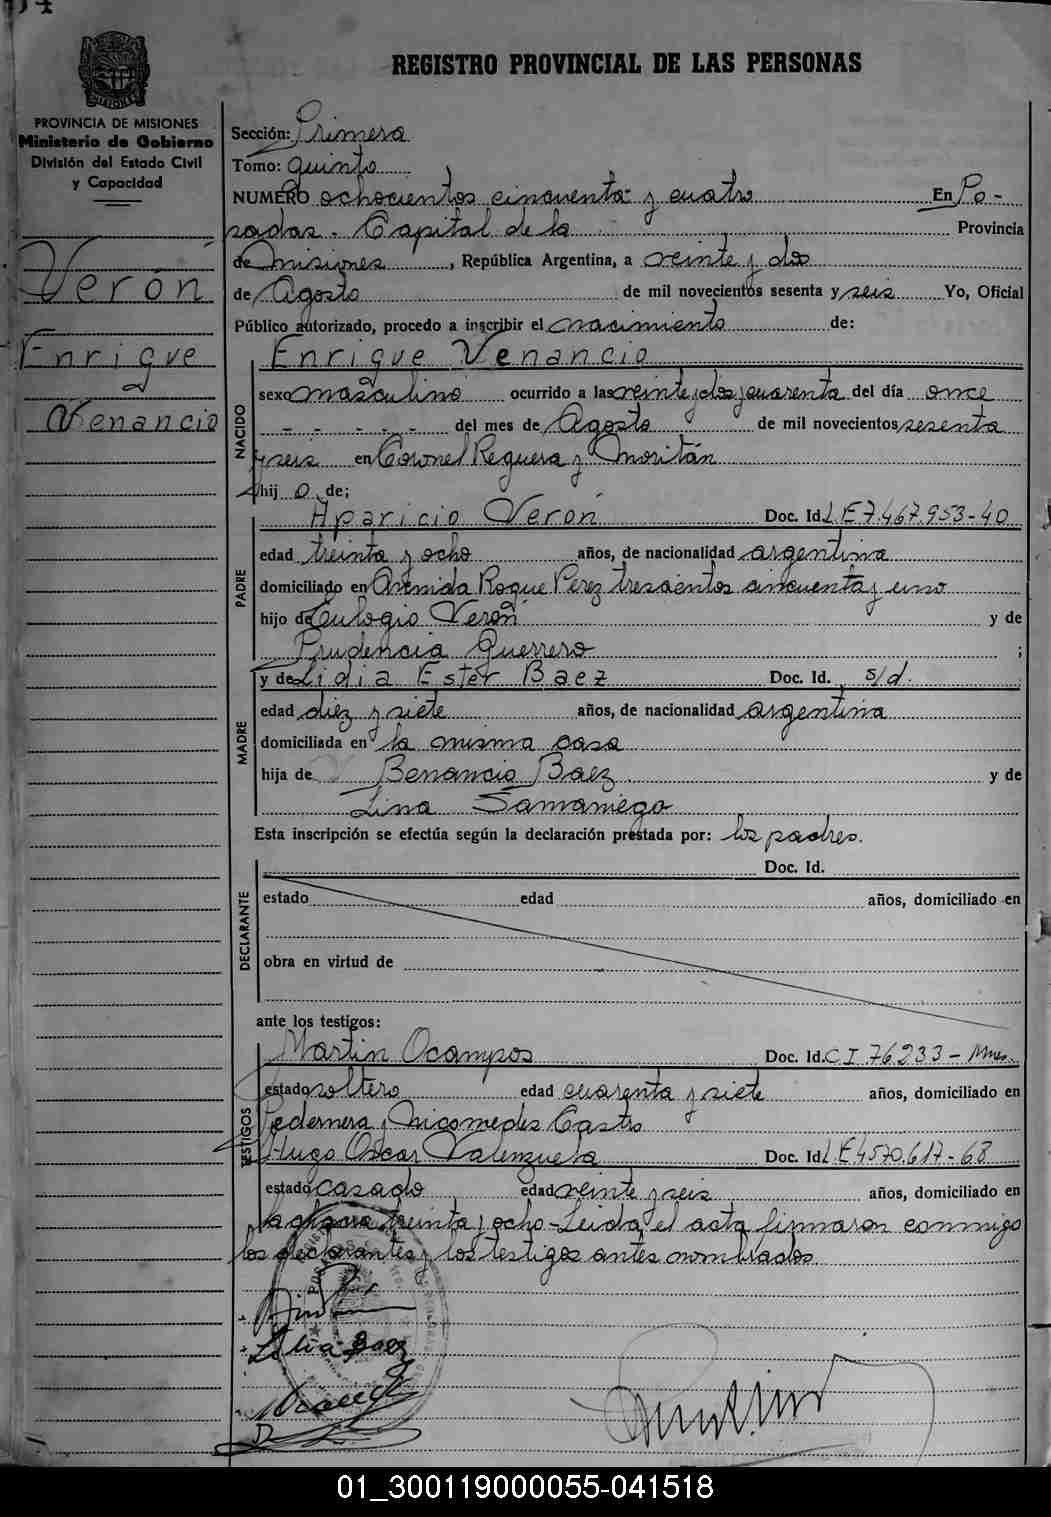 REGISTRO PROVINCIAL DE LAS PERSONAS
PROVINCIA DE MISIONES
Ministerio de Gobierno
División del Estado Civil
y Capacidad
Verón
Enrique
Venancio
Sección: Primera
Tomo: quinto
NUMERO ochocientos cincuenta y cuatro En Po-
sadas. Capital de la Provincia
de Misiones, República Argentina, a veinte y dos
de Agosto de mil novecientos sesenta y seis Yo, Oficial
Público autorizado, procedo a inscribir el nacimiento de:
NACIDO
Enrique Venancio
sexo masculino ocurrido a las veinte y dos y cuarenta del día once
- - - - - del mes de Agosto de mil novecientos sesenta
y seis en Coronel Reguera y Moritán
hijo de;
PADRE
Aparicio Verón Doc. Id. L.E 7.467.953-40
edad treinta y ocho años, de nacionalidad argentina
domiciliado en Avenida Roque Perez trescientos cincuenta y uno
hijo de Eulogio Verón y de
Prudencia Guerrero ;
MADRE
y de Lidia Ester Baez Doc. Id. s/d.
edad diez y siete años, de nacionalidad argentina
domiciliada en la misma casa
hija de Benancio Baez y de
Lina Samaniego
Esta inscripción se efectúa según la declaración prestada por: los padres.
DECLARANTE
Doc. Id.
estado edad años, domiciliado en
obra en virtud de
ante los testigos:
TESTIGOS
Martin Ocampos Doc. Id. C I 76.233 - Mnes.
estado soltero edad cuarenta y siete años, domiciliado en
Pedernera y Nicomedes Castro
Hugo Oscar Valenzuela Doc. Id. L.E 4.570.617-68
estado casado edad veinte y seis años, domiciliado en
la chacra treinta y ocho-Leida el acta firmaron conmigo
los declarantes y los testigos antes nombrados.
Lidia Baez
01_300119000055-041518